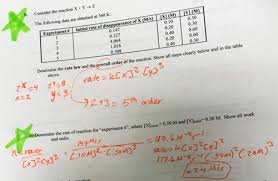 Consider the reaction X + Y → Z
The following data are obtained at 360 K:
Experiment # Initial rate of disappearance of X (M/s) [X] (M) [Y] (M)
1 0.147 0.10 0.50
2 0.127 0.20 0.30
3 4.064 0.40 0.60
4 1.016 0.20 0.60
5 0.508 0.40 0.30
Determine the rate law and the overall order of the reaction. Show all steps clearly and in the table
above.
2ˣ=4 2ʸ=8 rate=k[X]²[Y]³
x=2 y=3
→2+3= 5th order
Determine the rate of reaction for "experiment 6", where [X] = 0.50 M and [Y] = 0.20 M. Show all work
and units.
k=rate
[X]²[Y]³ = .147 M/s
[.10M]²[.50M]³ = 117.6 M⁻⁴s⁻¹
rate=k[X]²[Y]³
117.6 M⁻⁴s⁻¹(.50M)²(.20M)³
= .24 M/s